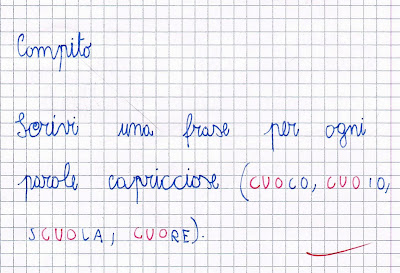 Compito
Scrivi una frase per ogni
parole capricciose (CUOCO, CUOIO,
SCUOLA, CUORE).